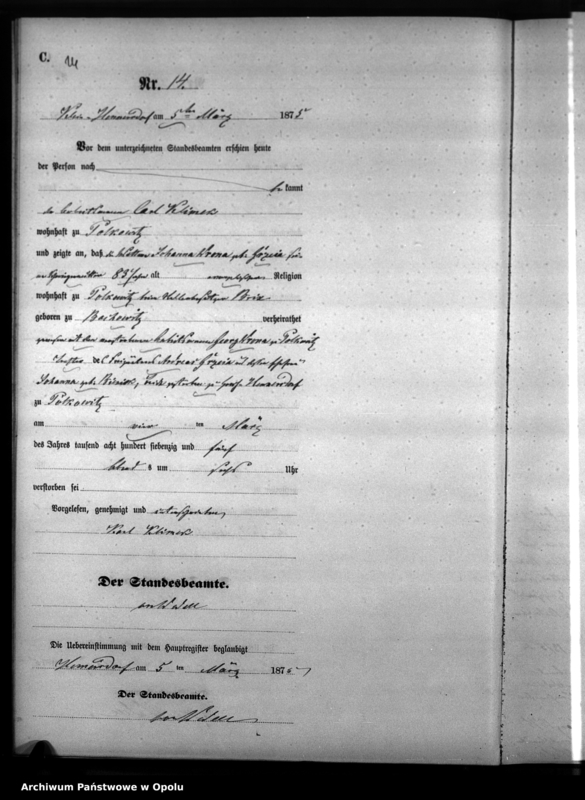 C. 14
Nr. 14.
Hennersdorf am 5ten März 1875
Vor dem unterzeichneten Standesbeamten erschien heute
der Person nach
bekannt
Carl Klimek
wohnhaft zu Polkowitz
und zeigte an, daß die Johanna Krona geb. Gözeia
83 Jahre alt evangelischer Religion
wohnhaft zu Polkowitz beim
geboren zu Bachowitz verheirathet
gewesen mit dem Georg Krona zu Polkowitz
Tochter des Andreas Gözeia und dessen Ehefrau
Johanna geb. beide verstorben zu Hennersdorf
zu Polkowitz
am vier ten März
des Jahres tausend acht hundert siebenzig und fünf
Abend s um sechs Uhr
verstorben sei
Vorgelesen, genehmigt und unterschrieben
Karl Klimek
Der Standesbeamte.
Die Uebereinstimmung mit dem Hauptregister beglaubigt
Hennersdorf am 5 ten März 1875
Der Standesbeamte.
Archiwum Państwowe w Opolu